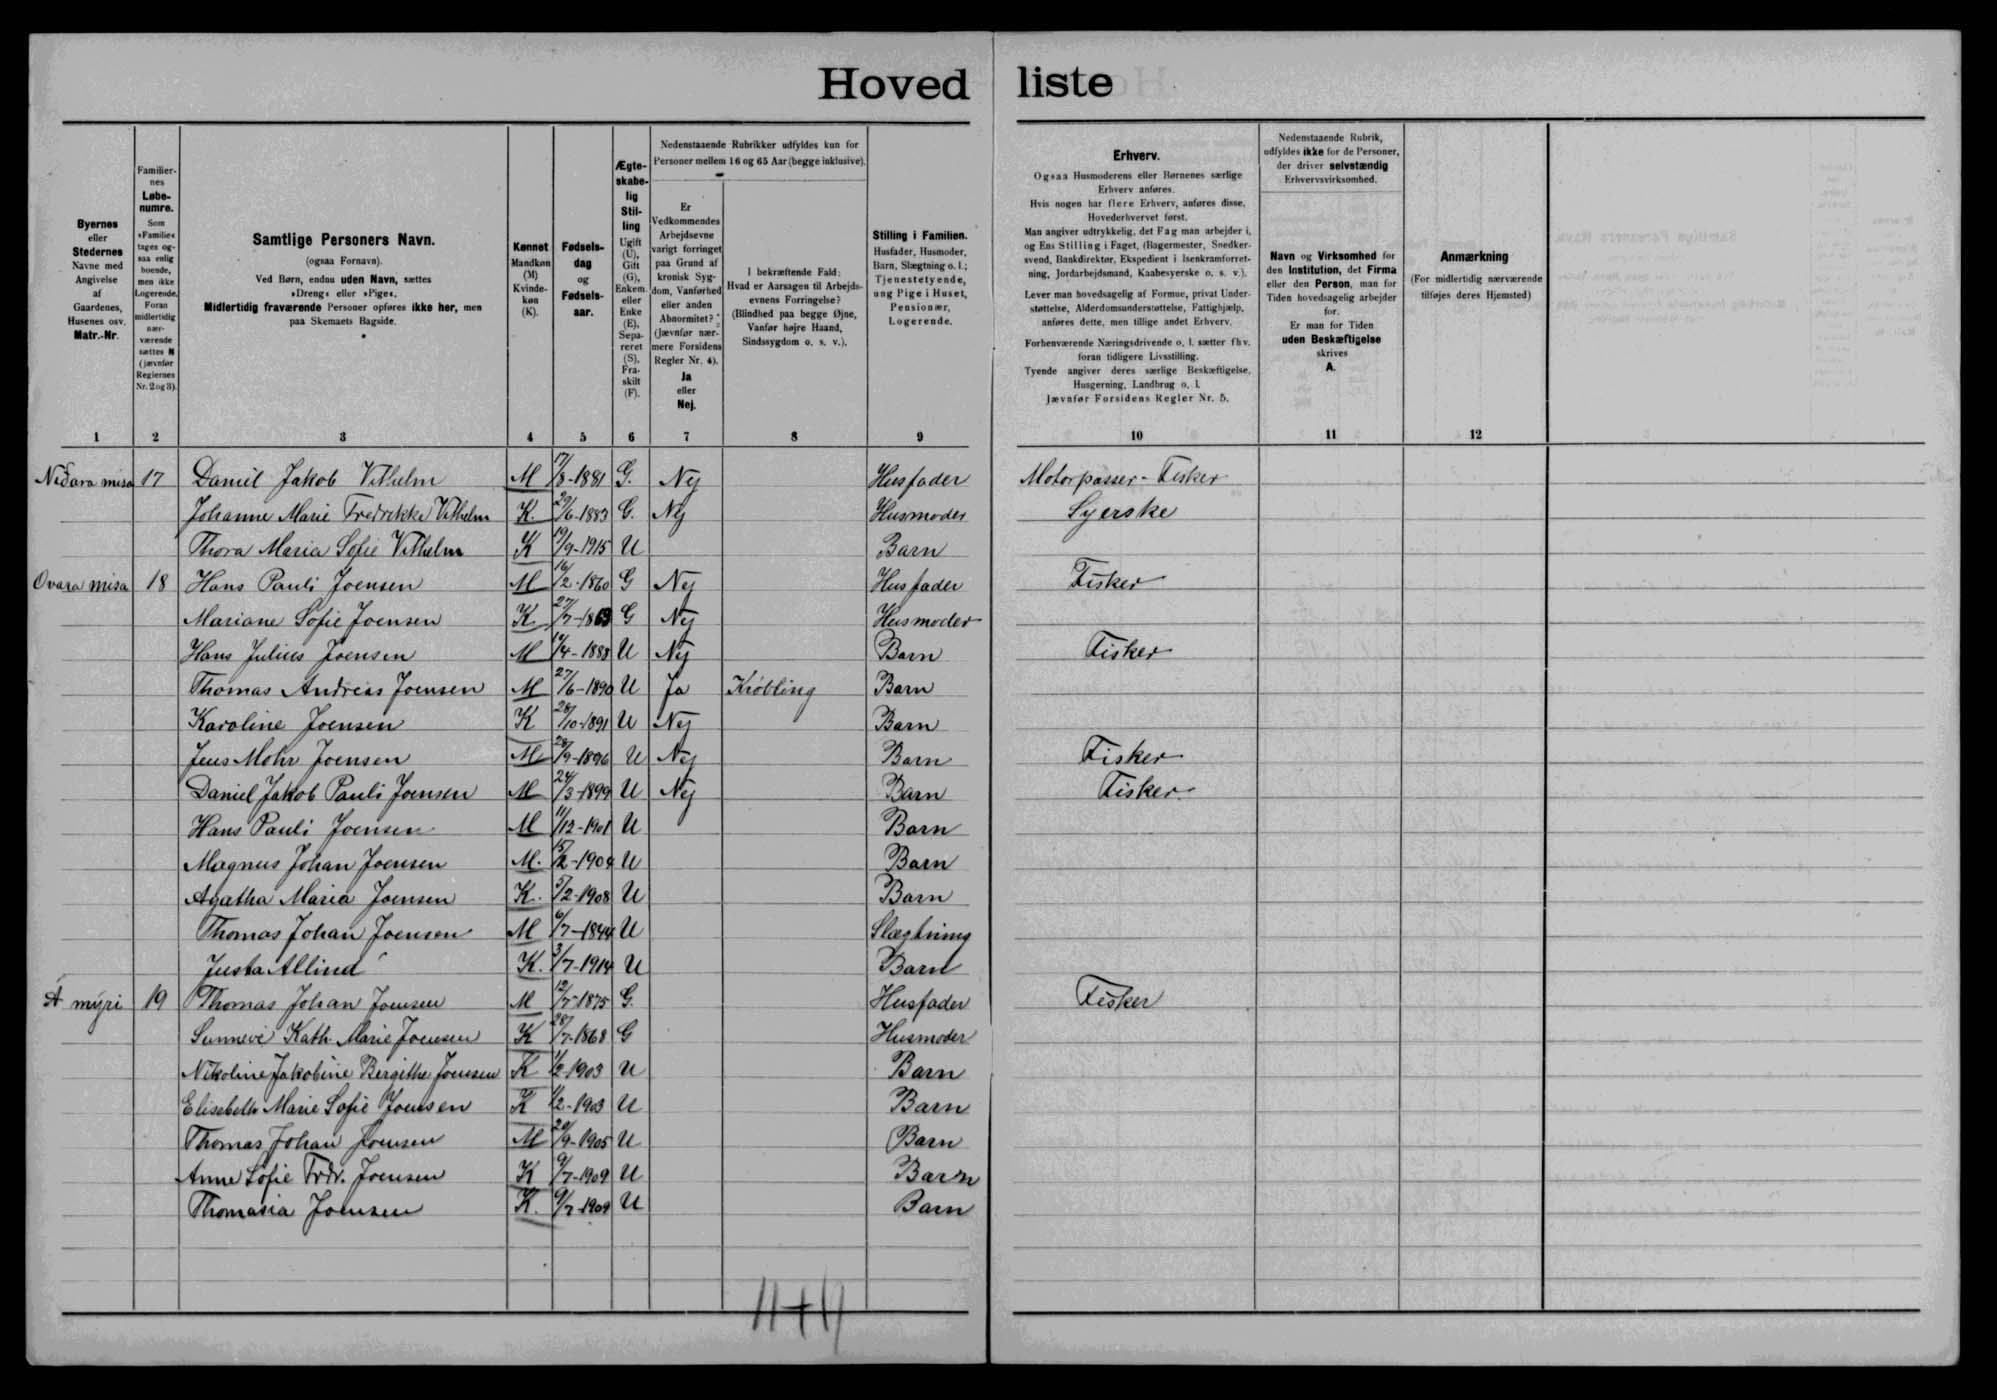 Hoved liste
Nedenstaaende Rubrikker udfyldes kun for
Personer mellem 16 og 65 Aar (begge inklusive).
Byernes
eller
Stedernes
Navne med
Angivelse
af
Gaardenes,
Husenes osv.
Matr.-Nr.
Familier-
nes
Løbe-
numre.
Som
»Familie«
tages og-
saa enlig
boende,
men ikke
Logerende.
Foran
midlertidig
nær-
værende
sættes N
(jævnfør
Reglernes
Nr. 2 og 3).
Samtlige Personers Navn.
(ogsaa Fornavn).
Ved Børn, endnu uden Navn, sættes
»Dreng« eller »Pige«.
Midlertidig fraværende Personer opføres ikke her, men
paa Skemaets Bagside.
Kønnet
Mandkøn
(M)
Kvinde-
køn
(K).
Fødsels-
dag
og
Fødsels-
aar.
Ægte-
skabe-
lig
Stil-
ling
Ugift
(U),
Gift
(G),
Enkem.
eller
Enke
(E),
Sepa-
reret
(S).
Fra-
skilt
(F).
Er
Vedkommendes
Arbejdsevne
varigt forringet
paa Grund af
kronisk Syg-
dom, Vanførhed
eller anden
Abnormitet?
(Jævnfør nær-
mere Forsidens
Regler Nr. 4).
Ja
eller
Nej.
I bekræftende Fald:
Hvad er Aarsagen til Arbejds-
evnens Forringelse?
(Blindhed paa begge Øjne,
Vanfør højre Haand,
Sindssygdom o. s. v.).
Stilling i Familien.
Husfader, Husmoder,
Barn, Slægtning o. l.;
Tjenestetyende,
ung Pige i Huset,
Pensionær,
Logerende.
Erhverv.
Ogsaa Husmoderens eller Børnenes særlige
Erhverv anføres.
Hvis nogen har flere Erhverv, anføres disse,
Hovederhvervet først.
Man angiver udtrykkelig, det Fag man arbejder i,
og Ens Stilling i Faget, (Bagermester, Snedker-
svend, Bankdirektør, Ekspedient i Isenkramforret-
ning, Jordarbejdsmand, Kaabesyerske o. s. v.).
Lever man hovedsagelig af Formue, privat Under-
støttelse, Alderdomsunderstøttelse, Fattighjælp,
anføres dette, men tillige andet Erhverv.
Forhenværende Næringsdrivende o. l. sætter fhv.
foran tidligere Livsstilling.
Tyende angiver deres særlige Beskæftigelse,
Husgerning, Landbrug o. l.
Jævnfør Forsidens Regler Nr. 5.
Nedenstaaende Rubrik,
udfyldes ikke for de Personer,
der driver selvstændig
Erhvervsvirksomhed.
Navn og Virksomhed for
den Institution, det Firma
eller den Person, man for
Tiden hovedsagelig arbejder
for.
Er man for Tiden
uden Beskæftigelse
skrives
A.
Anmærkning
(For midlertidig nærværende
tilføjes deres Hjemsted)
1 2 3 4 5 6 7 8 9 10 11 12
Niðara misa 17 Daniel Jakob Vilhelm M 17/8-1881 G. Nej Husfader Motorpasser-Fisker
Johanne Marie Fredrikke Vilhelm K. 29/6-1883 G. Nej Husmoder Syerske
Thora Maria Sofie Vilhelm K 19/9-1915 U Barn
Ovara misa 18 Hans Pauli Joensen M 16/2-1860 G Nej Husfader Fisker
Mariane Sofie Joensen K 27/7-1863 G Nej Husmoder
Hans Julius Joensen M 14/4-1888 U Nej Barn Fisker
Thomas Andreas Joensen M 27/6-1890 U Ja Krøbling Barn
Karoline Joensen K 28/10-1891 U Nej Barn
Jens Mohr Joensen M 28/9-1896 U Nej Barn Fisker
Daniel Jakob Pauli Joensen M 24/3-1899 U Nej Barn Fisker
Hans Pauli Joensen M 11/12-1901 U Barn
Magnus Johan Joensen M. 15/2-1904 U Barn
Agatha Maria Joensen K. 5/2-1908 U Barn
Thomas Johan Joensen M 6/7-1844 U Slægtning
Justa Allind K. 3/7-1914 U Barn
Á mýri 19 Thomas Johan Joensen M 12/7-1875 G. Husfader Fisker
Sunneve Kath. Marie Joensen K 28/7-1868 G Husmoder
Nikoline Jakobine Bergithe Joensen K 1/2-1903 U Barn
Elisabeth Marie Sofie Joensen K 1/2-1903 U Barn
Thomas Johan Joensen M 20/9-1905 U Barn
Anne Sofie Fredr. Joensen K 9/7-1909 U Barn
Thomasia Joensen K. 9/7-1909 U Barn